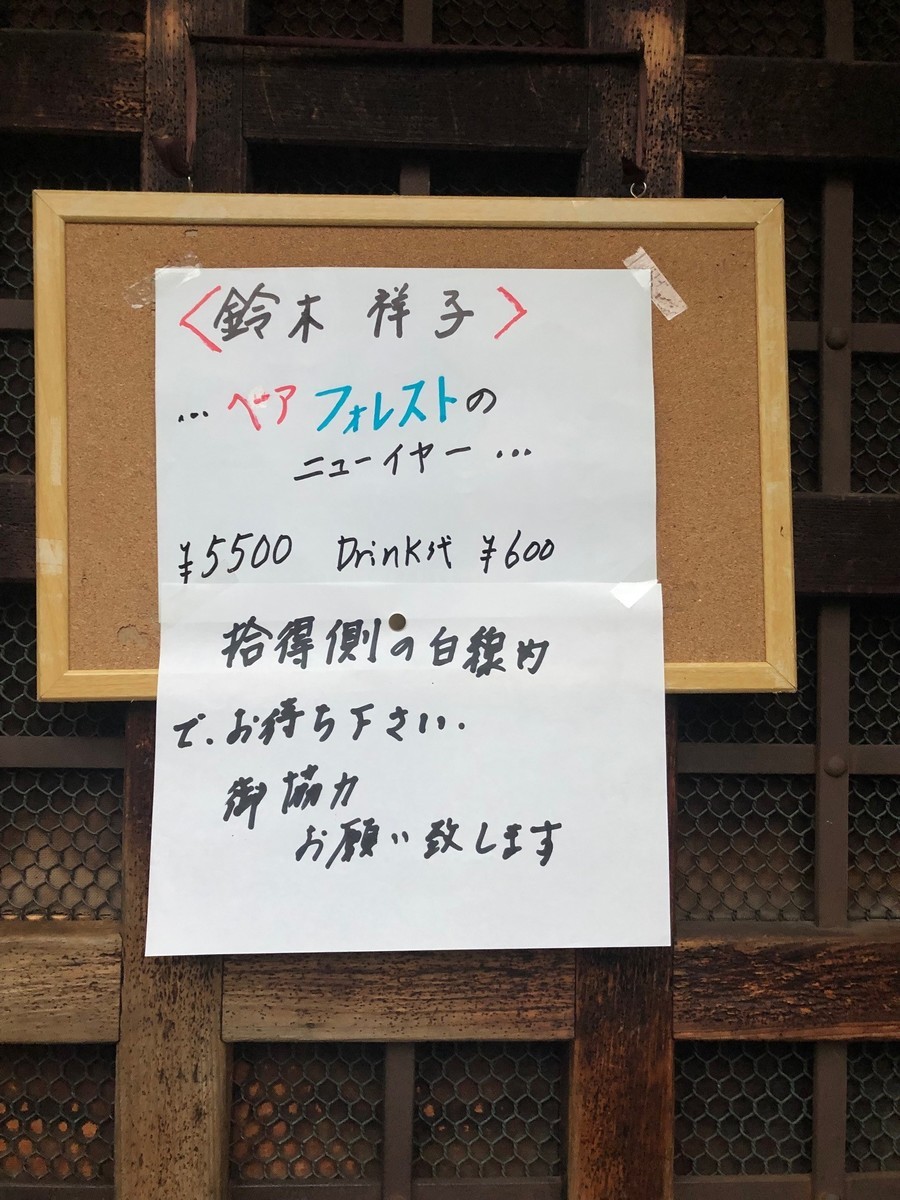 〈鈴木 祥子〉
… ベア フォレストの
ニューイヤー …
¥5500 Drink代 ¥600
拾得側の白線内
で、お待ち下さい.
御協力
お願い致します